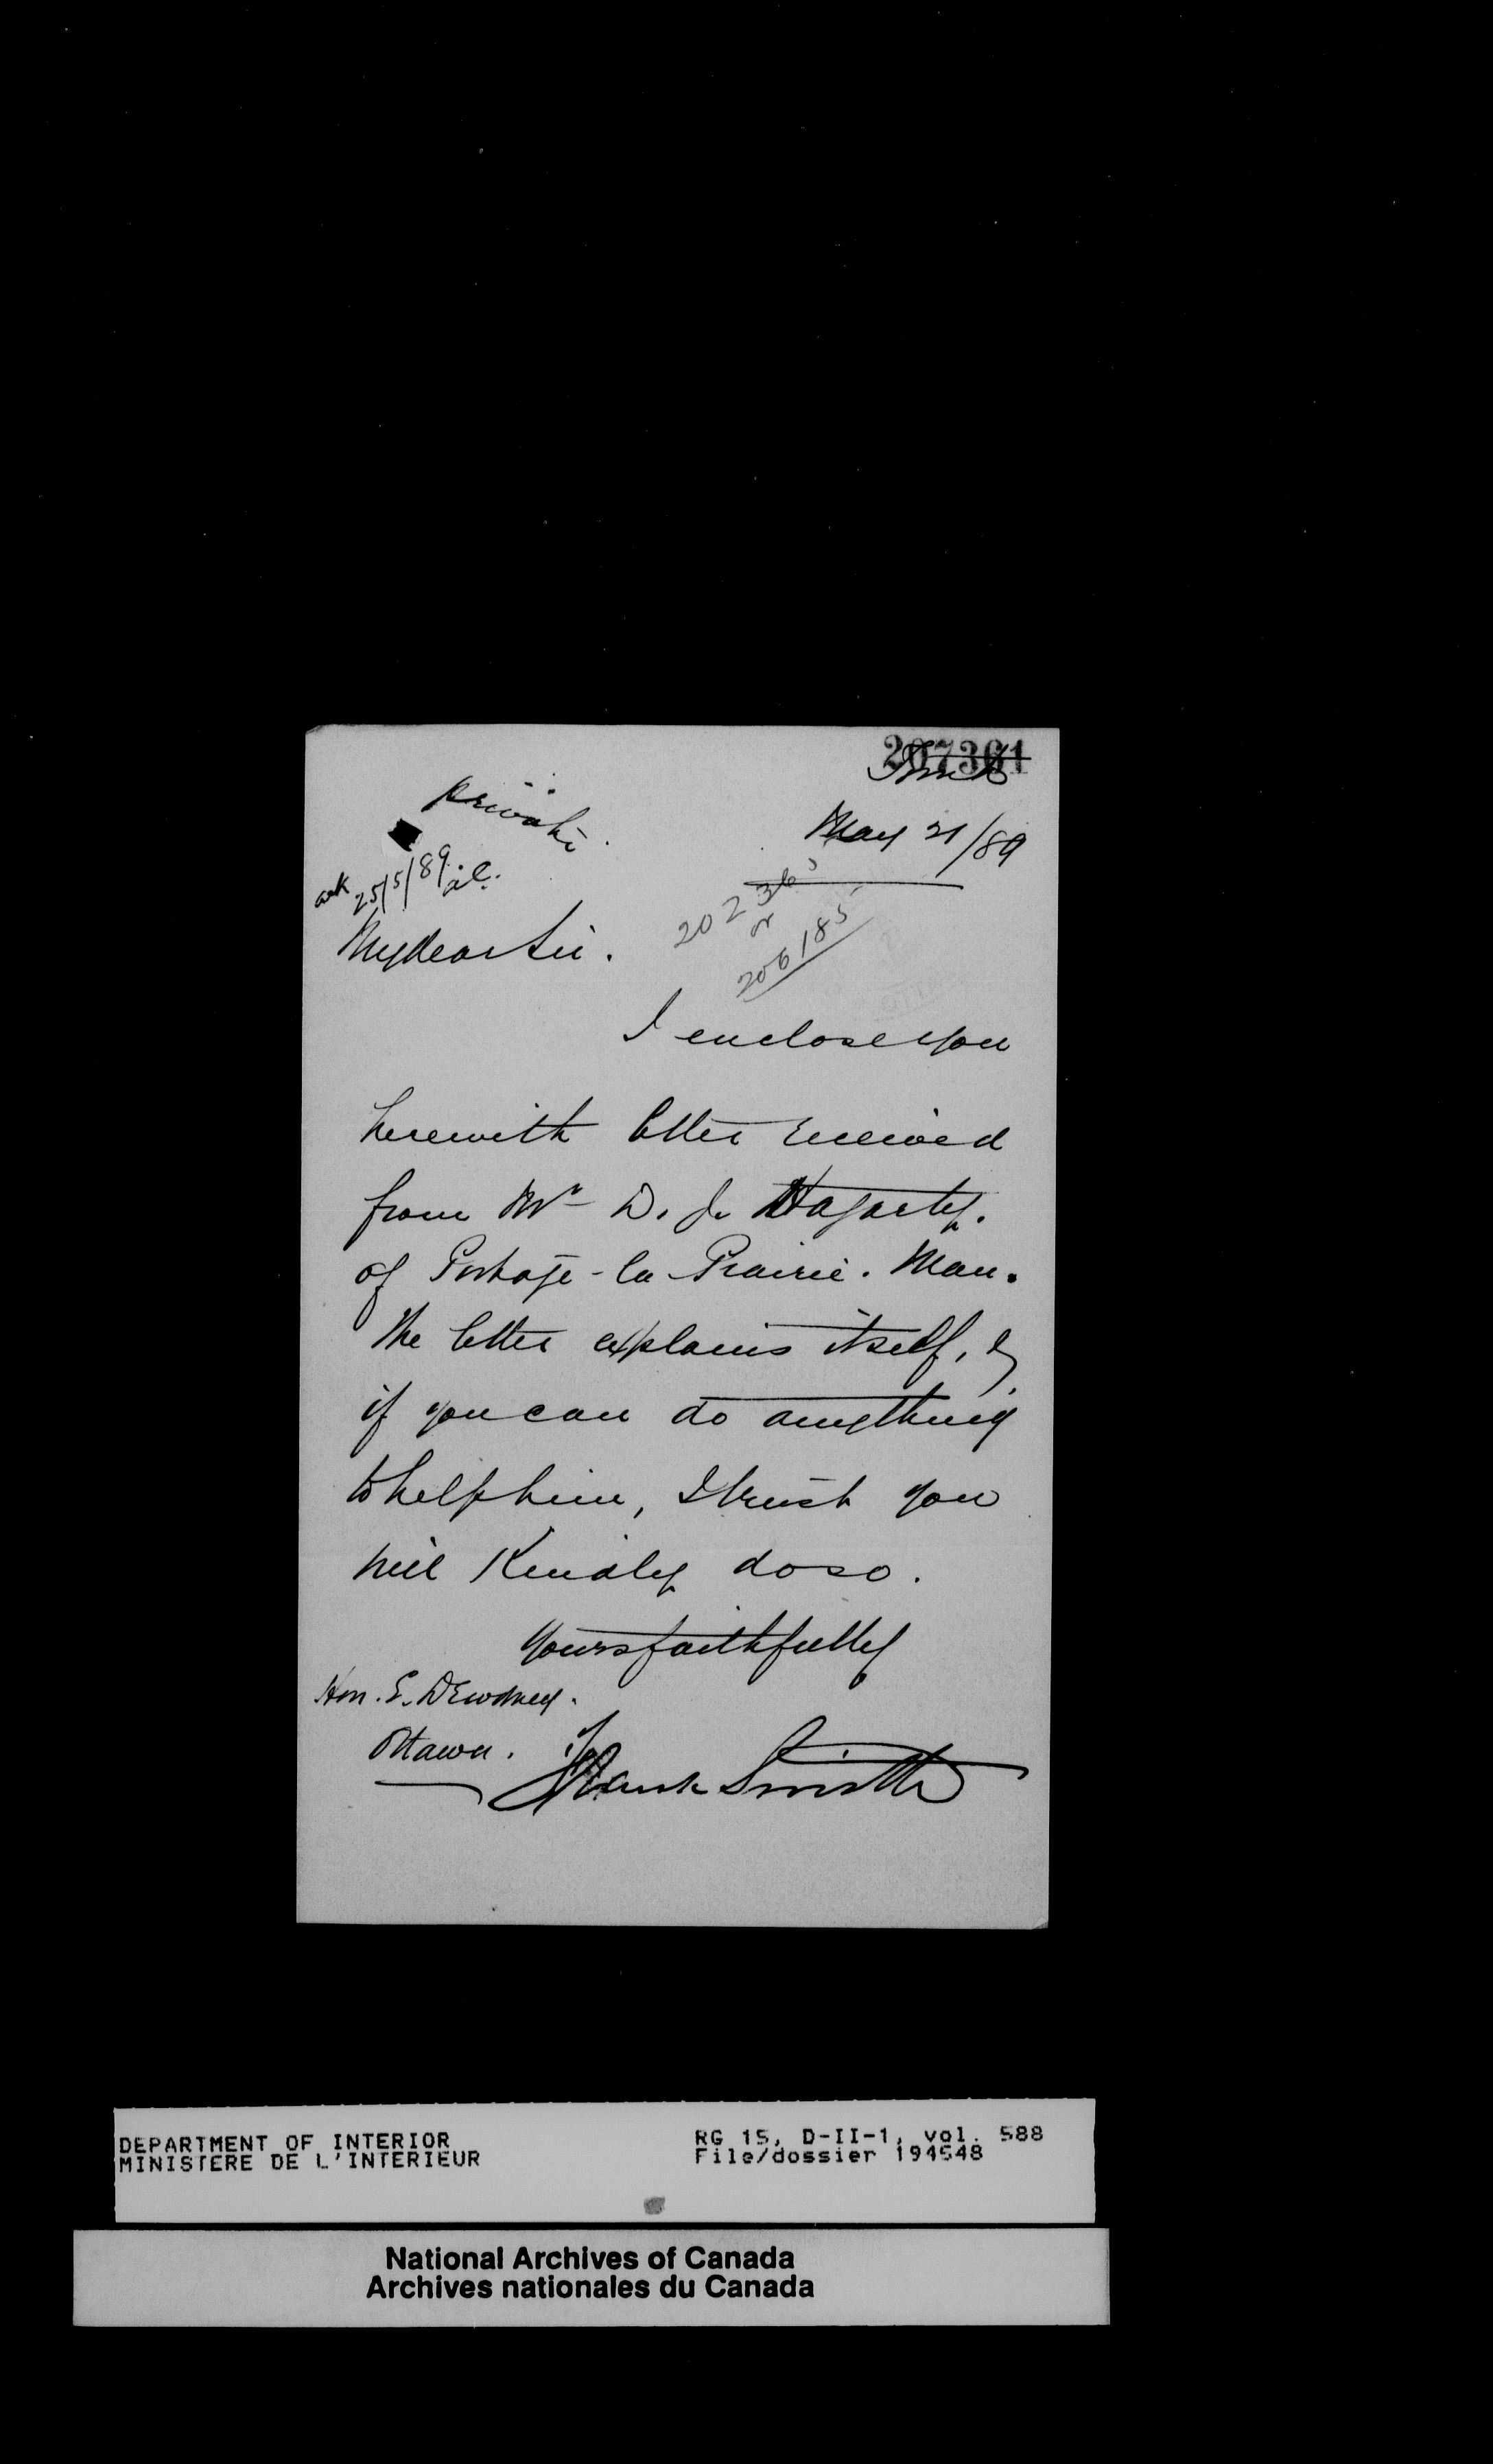 207361
private
May 21/89
ack 25/5/89
202363
or
206185
My dear Sir.
I enclose you
herewith letter received
from Mr D. J. Hagarty.
of Portage-la-Prairie. Man.
The letter explains itself, &
if you can do anything
to help him, I trust you
will Kindly do so.
Yours faithfully
Hon. E. Dewdney.
Ottawa.
Frank Smith
DEPARTMENT OF INTERIOR
MINISTERE DE L'INTERIEUR
RG 15, D-II-1, vol. 588
File/dossier 194548
National Archives of Canada
Archives nationales du Canada